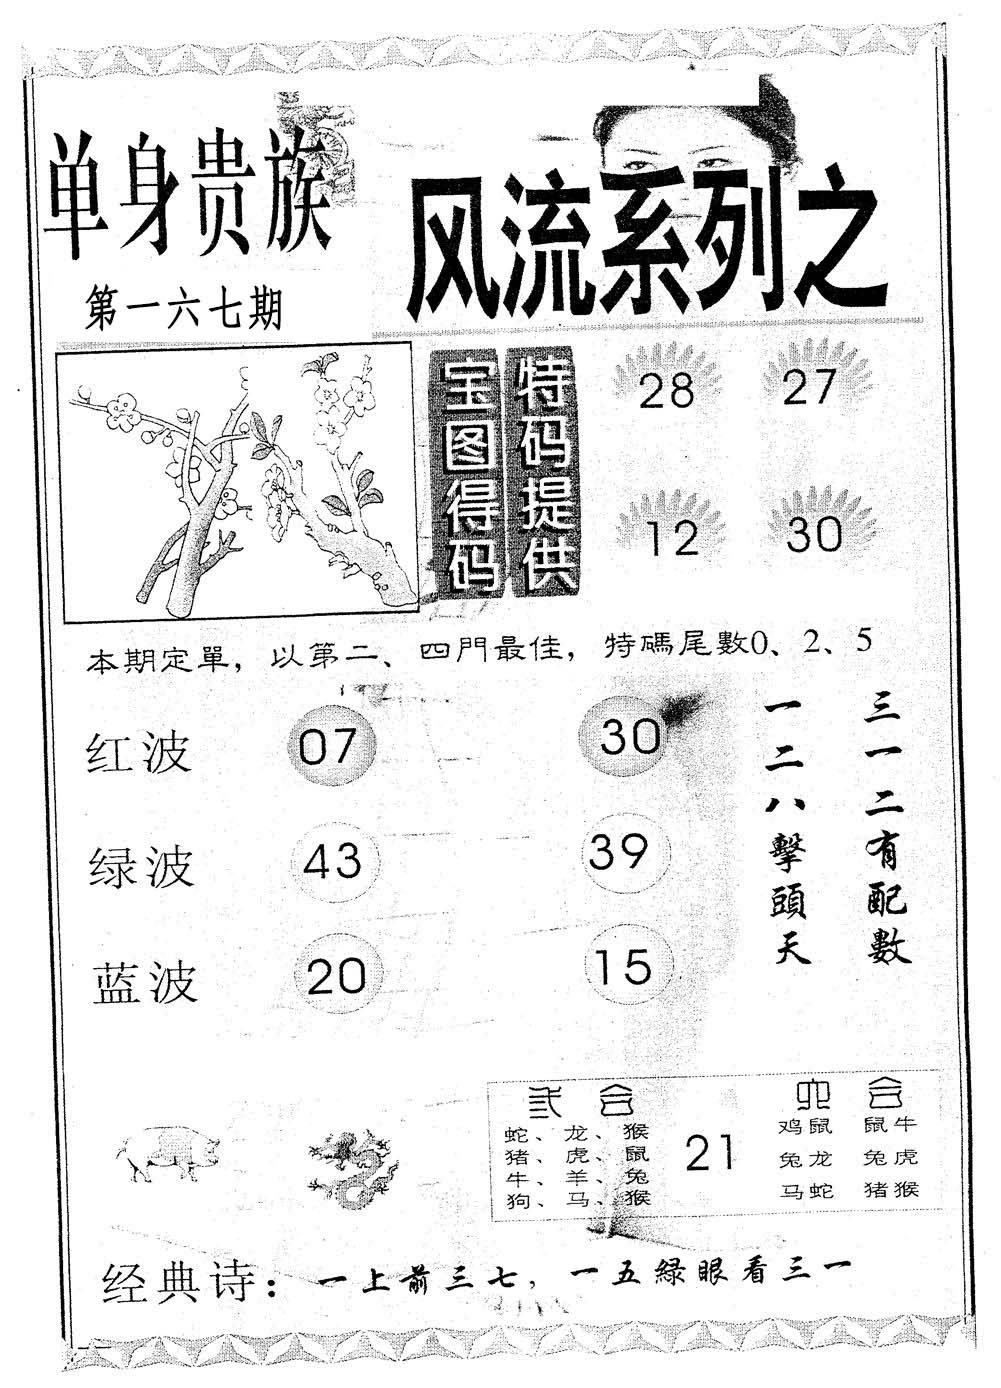 单身贵族
风流系列之
第一六七期
特码提供
宝图得码
28 27
12 30
本期定單，以第二、四門最佳，特碼尾數0、2、5
红波 07 30
绿波 43 39
蓝波 20 15
三一二有配數
一二八擊頭天
弎合
蛇、龙、猴
猪、虎、鼠
牛、羊、兔
狗、马、猴
21
六合
鸡鼠 鼠牛
兔龙 兔虎
马蛇 猪猴
经典诗：一上前三七，一五綠眼看三一